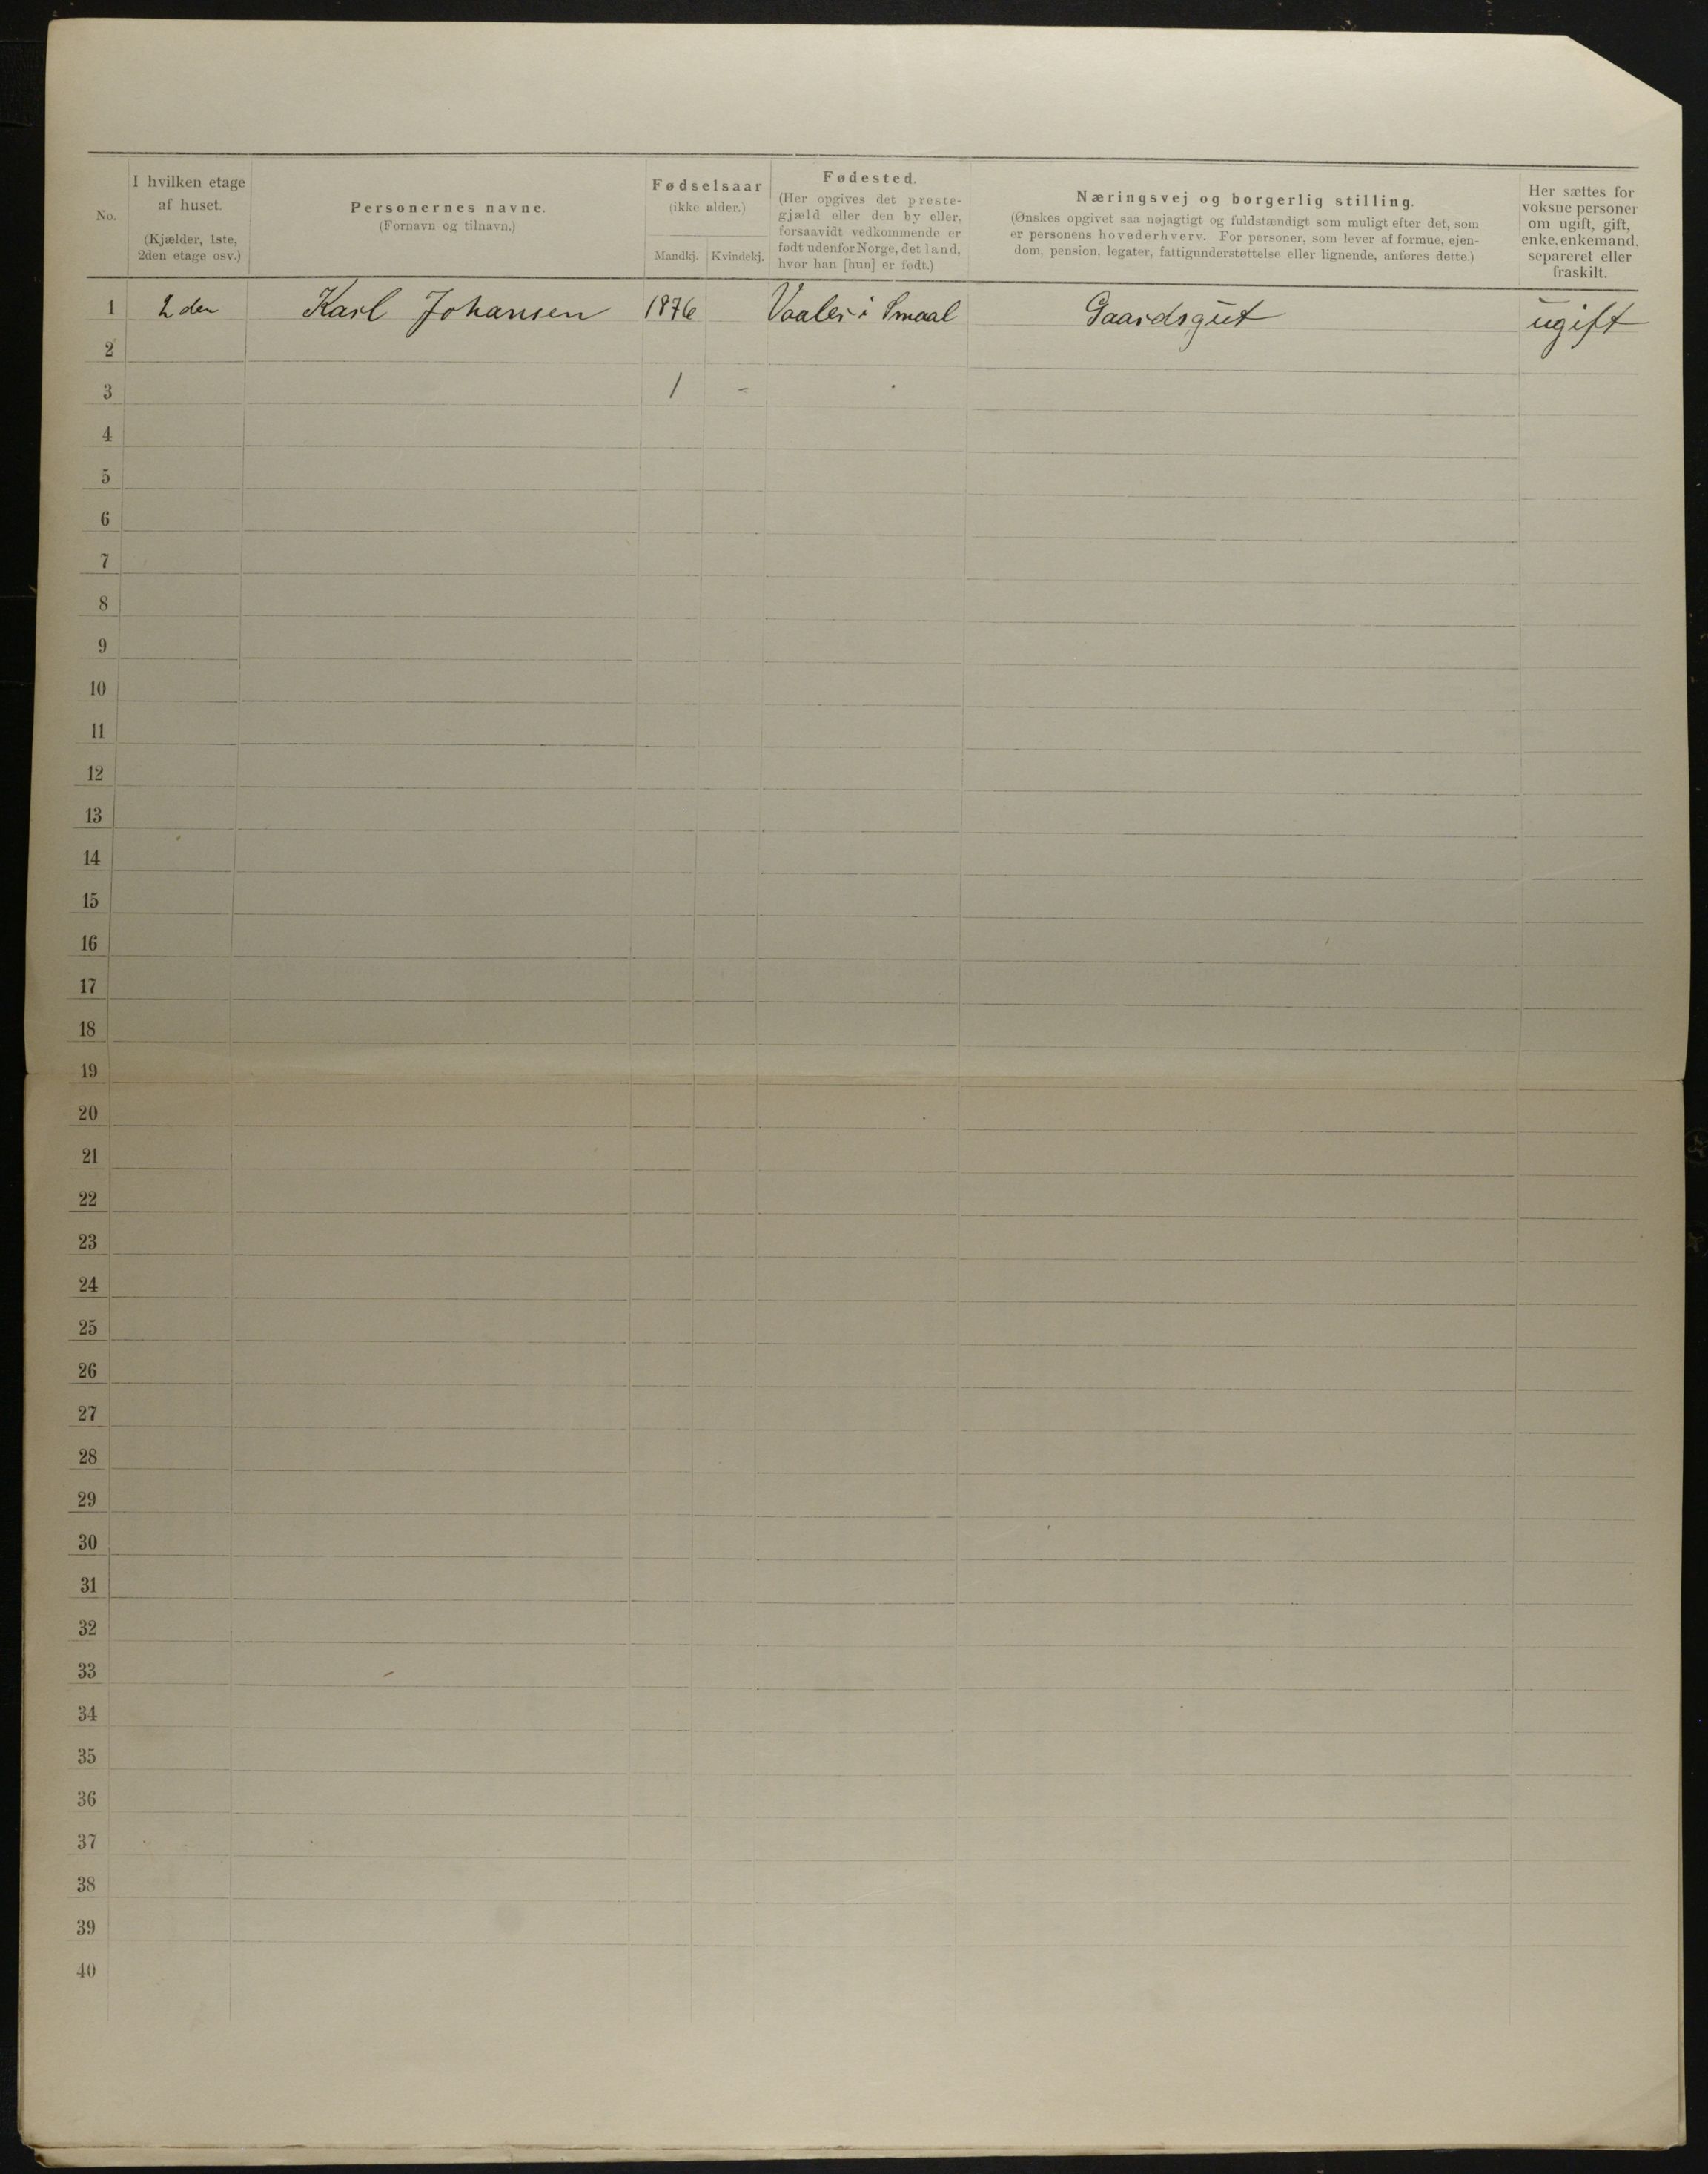 No.
I hvilken etage
af huset.
(Kjælder, 1ste,
2den etage osv.)
Personernes navne.
(Fornavn og tilnavn.)
Fødselsaar
(ikke alder.)
Mandkj. Kvindekj.
Fødested.
(Her opgives det preste-
gjæld eller den by eller,
forsaavidt vedkommende er
født udenfor Norge, det land,
hvor han [hun] er født.)
Næringsvej og borgerlig stilling.
(Ønskes opgivet saa nøjagtigt og fuldstændigt som muligt efter det, som
er personens hovederhverv. For personer, som lever af formue, ejen-
dom, pension, legater, fattigunderstøttelse eller lignende, anføres dette.)
Her sættes for
voksne personer
om ugift, gift,
enke, enkemand,
separeret eller
fraskilt.
1 2den Karl Johansen 1876 Vaaler i Smaal Gaardsgut ugift
2
3 1 -
4
5
6
7
8
9
10
11
12
13
14
15
16
17
18
19
20
21
22
23
24
25
26
27
28
29
30
31
32
33
34
35
36
37
38
39
40